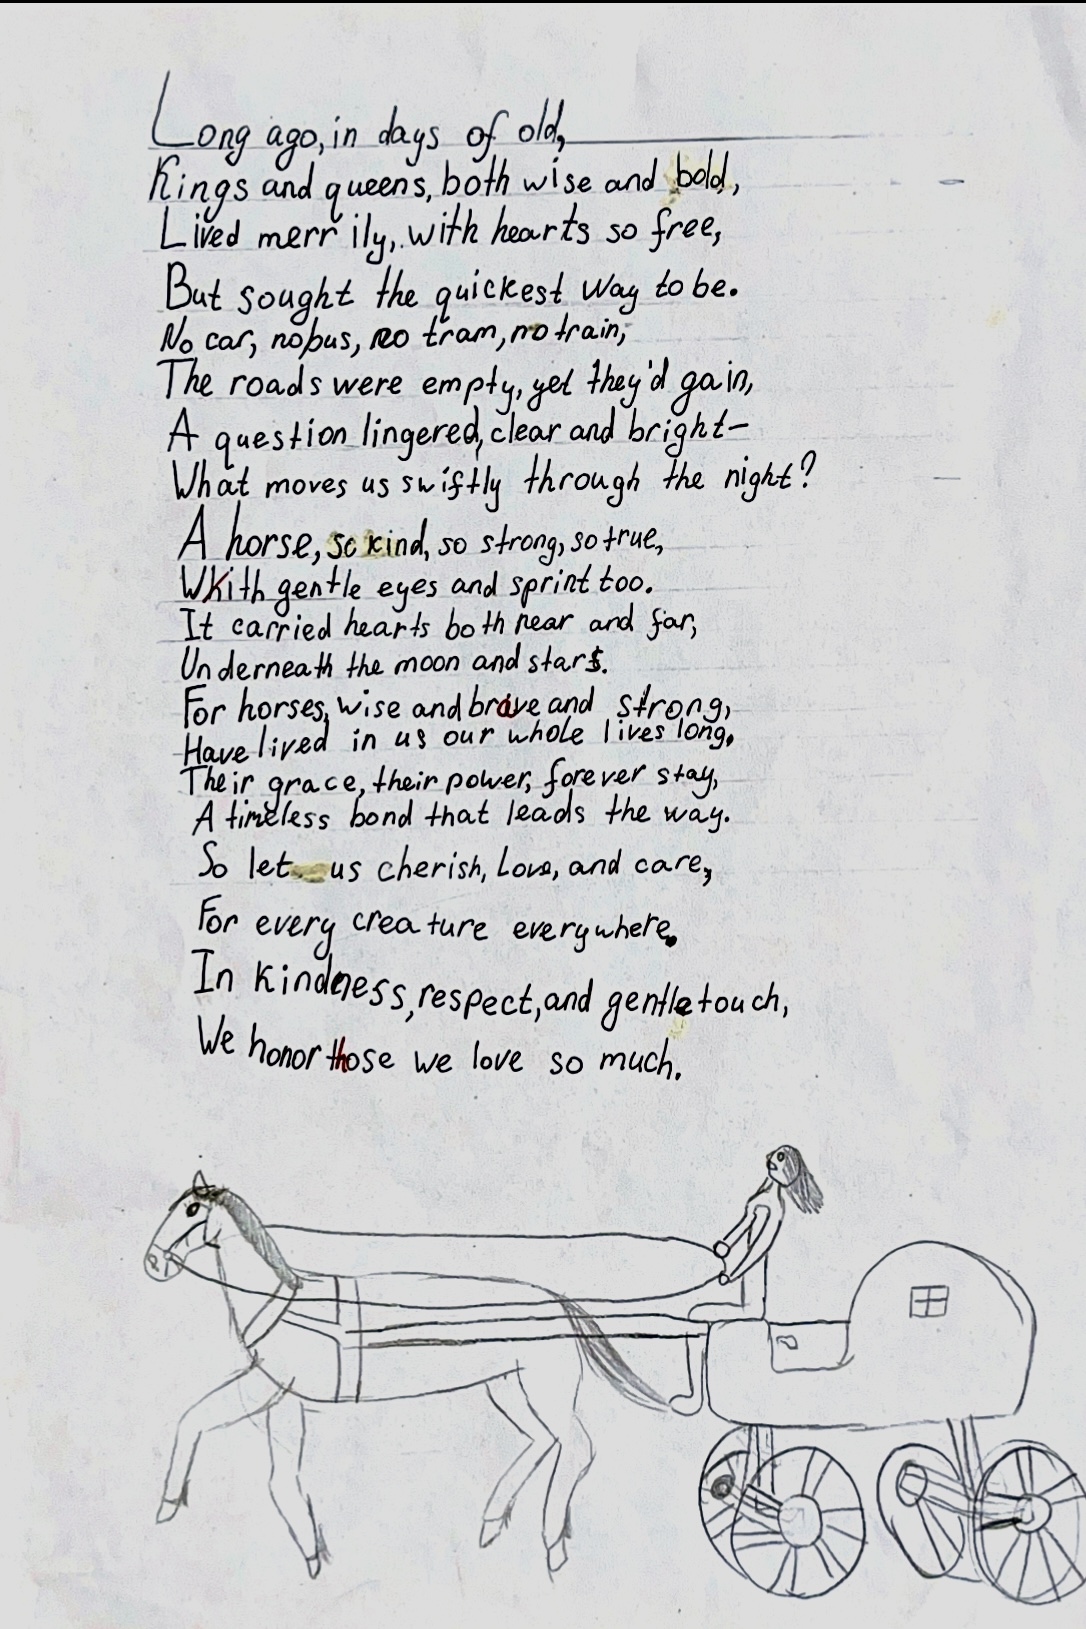 Long ago, in days of old,
Kings and queens, both wise and bold,
Lived merrily, with hearts so free,
But sought the quickest way to be.
No car, no bus, no tram, no train,
The roads were empty, yet they'd gain,
A question lingered, clear and bright–
What moves us swiftly through the night?
A horse, so kind, so strong, so true,
With gentle eyes and sprint too.
It carried hearts both near and far,
Underneath the moon and stars.
For horses, wise and brave and strong,
Have lived in us our whole lives long.
Their grace, their power, forever stay,
A timeless bond that leads the way.
So let us cherish, Love, and care,
For every creature everywhere.
In kindness, respect, and gentle touch,
We honor those we love so much.